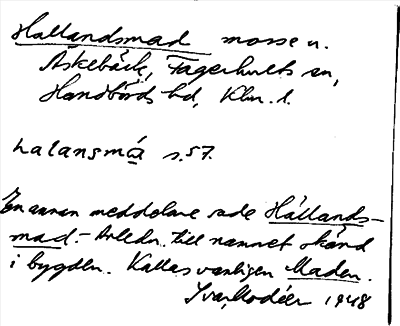 Hallandsmad mosse u.
Äskebäck, Fagerhults sn,
Handbörds hd, Klm. l.
halansmá s. 57.
En annan meddelare sade Hállands-
mad. - Anledn. till namnet okänd
i bygden. Kallas vanligen Maden.
Ivar Modéer 1948